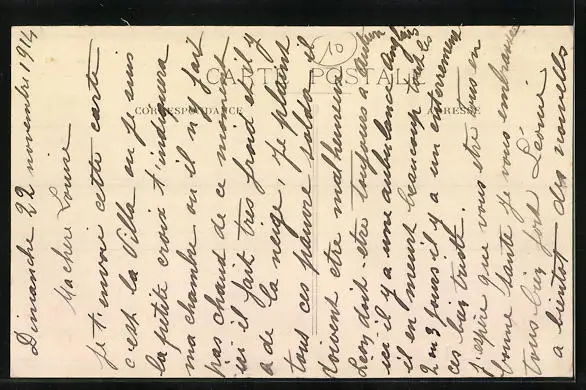 Dimanche 22 novembre 1914
Ma chere Louise
je t'envoie cette carte
c'est la Villa ou je suis
la petite croix t'indiquera
ma chambre ou il ne fait
pas chaud de ce moment
ici il fait tres froid et il y
a de la neige, je plaint
tous ces pauvre soldat il
doivent etre malheureux
Léon doit etre toujours a
ici il y a une ambulance
il en meurt beaucoup tous les
2 ou 3 jours il y a un enterrement
ces bien triste.
j'espère que vous etre tous en
bonne santé je vous embrasse
tous bien fort Léonie
a bientot des nouvelles
CARTE POSTALE
CORRESPONDANCE
ADRESSE
10